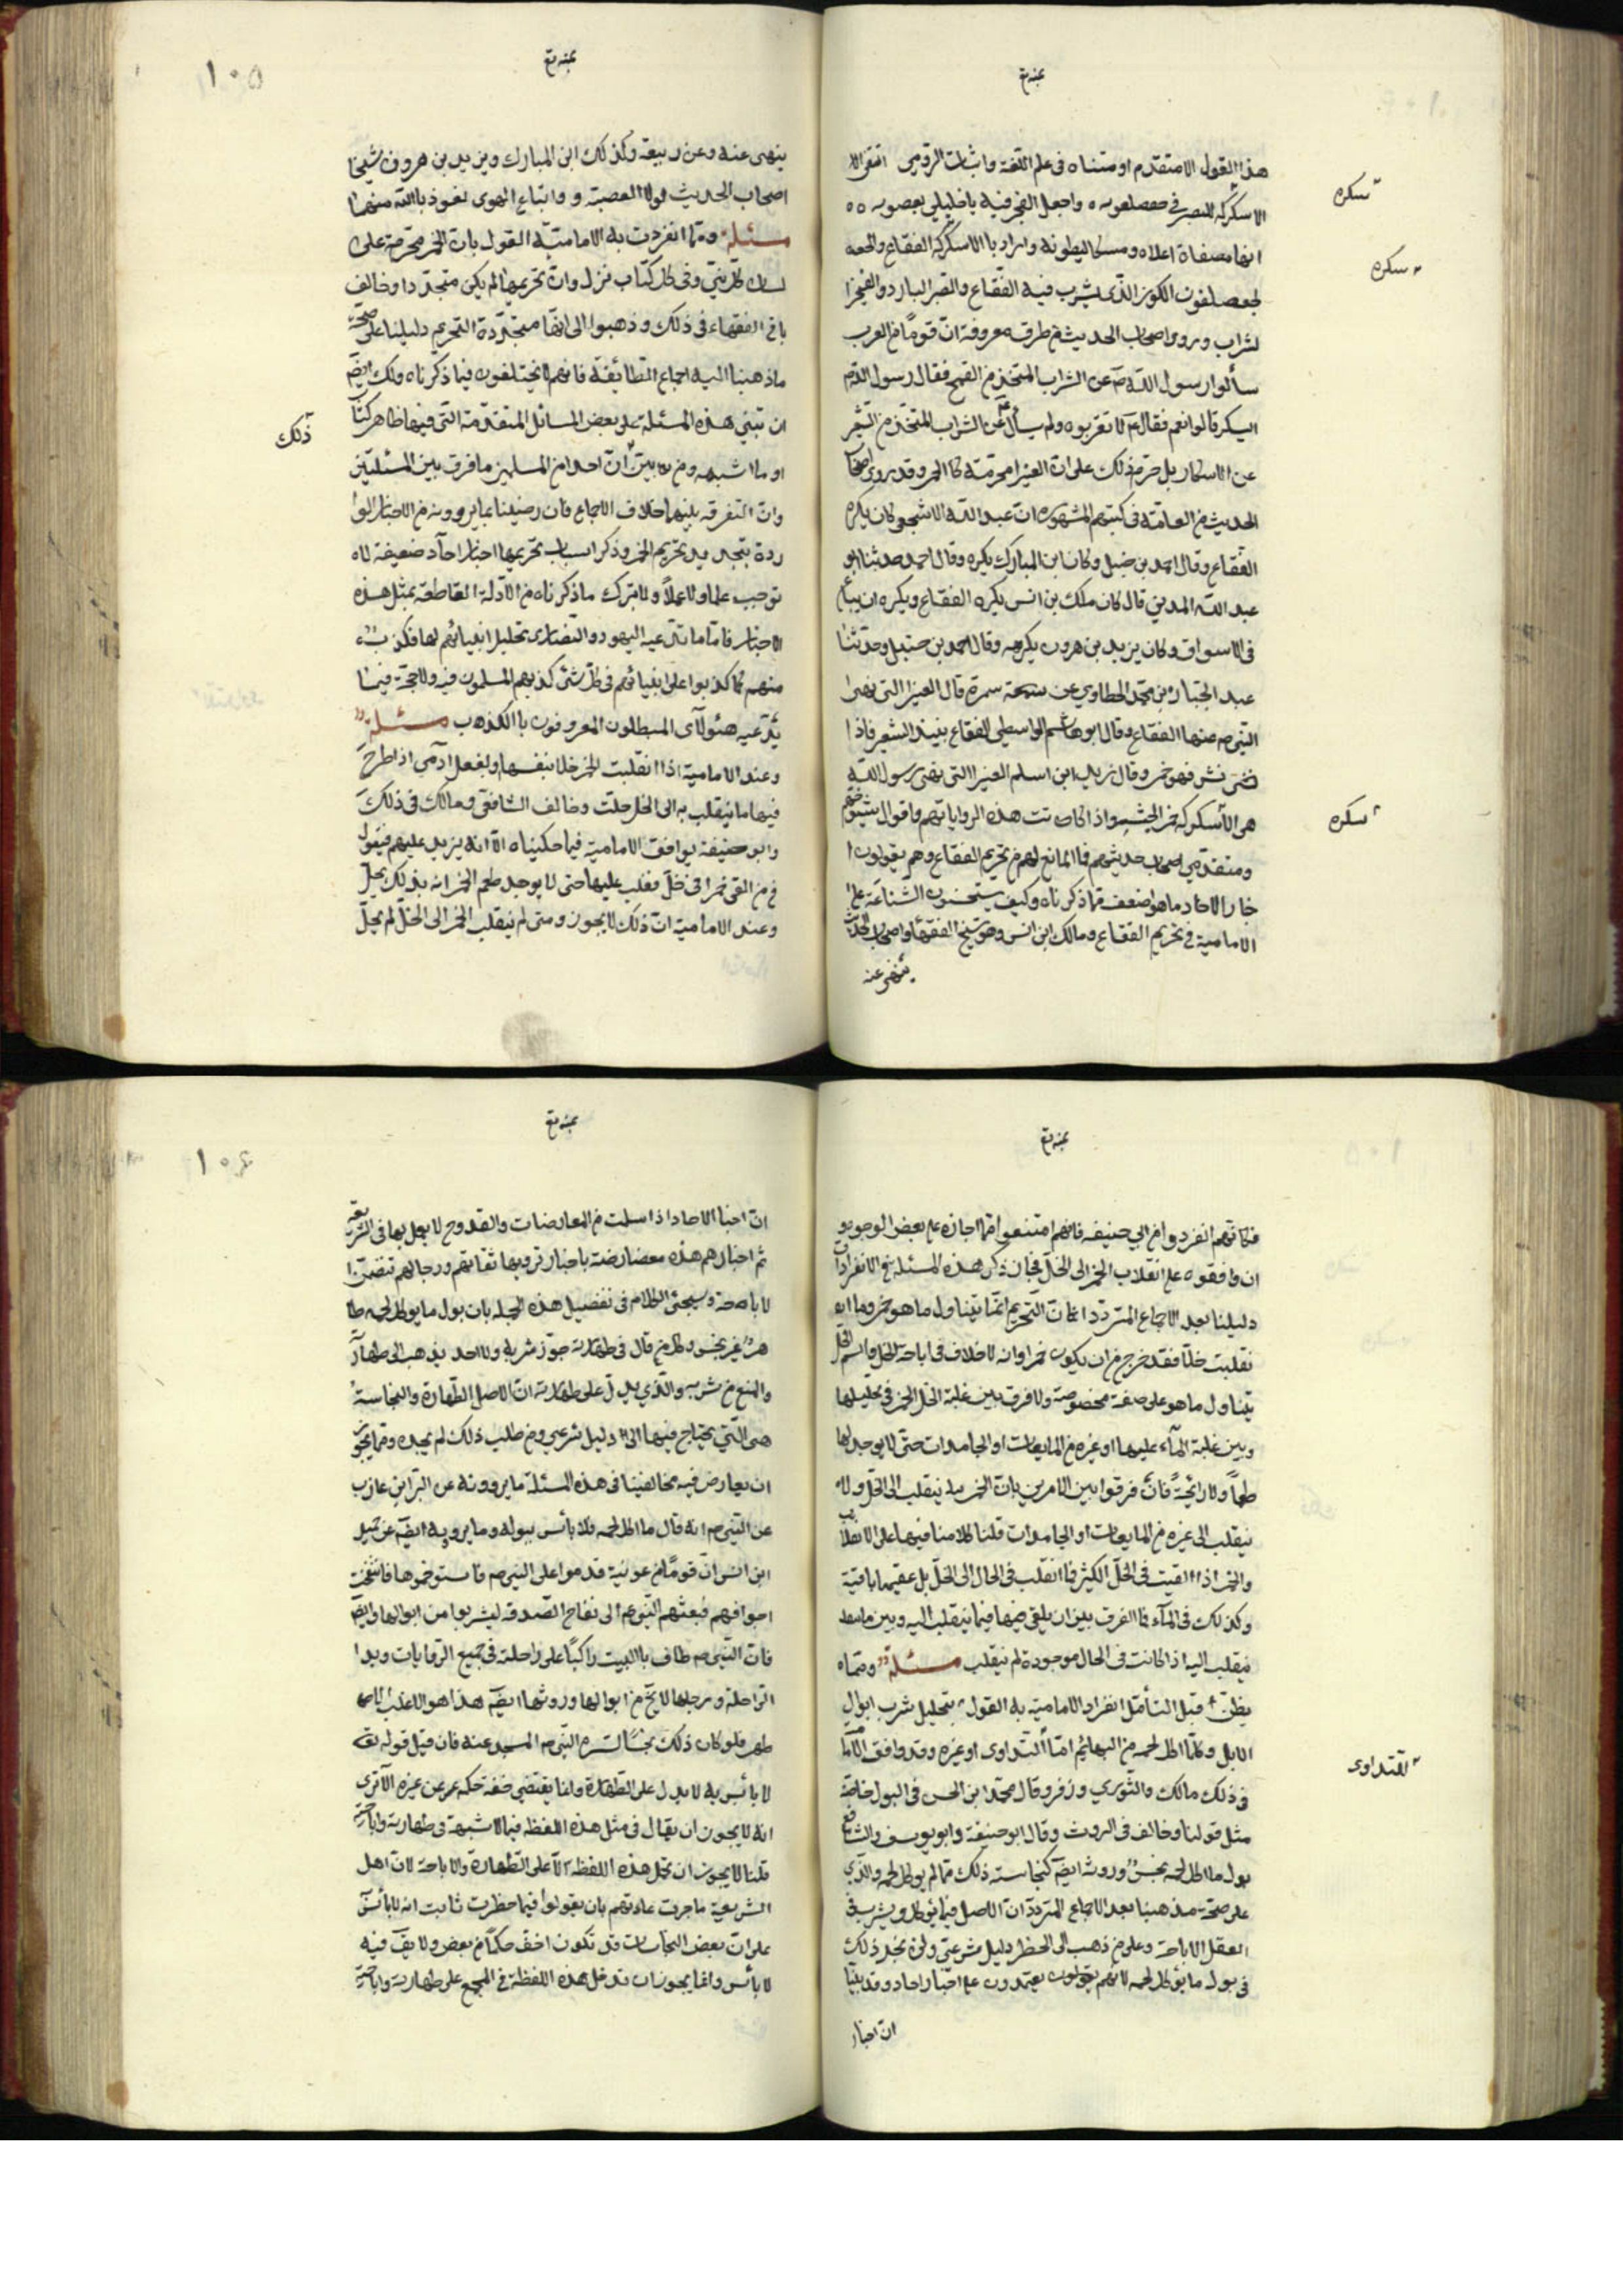 هذا القول الا متقدم او متناه فى علم اللغة واثبات الرومى
الاسكركه للبصر فى واجعل الفجر فنيه يا خليلى بعصوبه
انها مصفاة اعلاه ومسكا لبطونه واراد با الاسكركه الفقاع والجعه
الكوز الذى يشرب فيه الفقاع والصر البارد
لشراب وروو اصحاب الحديث من طرق معروفة ان قوما من العرب
سألوا رسول الله ص عن الشراب المتخذ من القمح فقال رسول الله ص
ايسكر قالوا نعم فقال ع لا تقربوه ولم يسأل ع عن الشراب المتخذ من الشعير
عن الاسكار بل حرم ذلك على ان الغبيرا محرمة كا الخمر وقد روى اصحاب
الحديث من العامة فى كتبهم المشهوره ان عبد الله الاشجعى كان يكره
الفقاع وقال احمد بن حنبل وكان ابن المبارك يكره وقال احمد حدثنا ابو
عبد الله المدينى قال كان ملك بن انس يكره الفقاع ويكره ان يباع
فى الاسواق وكان يزيد بن هرون يكرهه وقال احمد بن حنبل وحدثنا
عبد الجبار بن محمد الخطاوى عن سمرة قال الغبيرا التى نهى
النبى ص عنها الفقاع وقال ابو هاشم الواسطى الفقاع نبيذ الشعير فاذا
نش فهو خمر وقال زيد ابن اسلم الغبيرا التى نهى رسول الله
هى الأسكركه خمر الحبشه واذا كانت هذه الروايا تهم واقول شيوخهم
ومتقدمى اصحاب حديثهم فا المانع لهم من تحريم الفقاع وهم يقولون ا
خبار الاحاد ما هو اضعف مما ذكرناه وكيف يستحسنون الشناعة على
الامامية فى تحريم الفقاع ومالك ابن انس وهو شيخ الفقهآ واصحاب الحديث
ينهى عنه
سكره
سكره
سكره
١٠٥
ينهى عنه وعن ربيعة وكذلك ابن المبارك ويزيد بن هرون شيخا
اصحاب الحديث لولا العصبية و واتباع الهوى نعوذ با الله منهما
مسئله ومما انفردت به الامامية القول بان الخمر محرمة على
لسان كل نبى وفى كل كتاب نزل وان تحريمها لم يكن متجددا وخالف
باقى الفقهاء فى ذلك وذهبوا الى انها متجددة التحريم دليلنا على صحة
ما ذهبنا اليه اجماع الطائفة فانهم لا يختلفون فيما ذكرناه ولك ايض
ان تبنى هذه المسئلة على بعض المسائل المتقدمة التى فيها ظاهر كتاب
او ما اشبهه ومن ما بين ان احدا من المسلمين ما فرق بين المسئلتين
وان التفرقه بينهما خلاف الاجماع فان رضينا بما يروونه من الاخبار الوا
ردة بتجديد تحريم الخمر وذكر اسباب تحريمها اخبار احآد ضعيفة لاه
توجب علما ولا عملا ولا يترك ما ذكرناه من الادلة القاطعة بمثل هذه
الاخبار فاما ما تدعيه اليهود والنصارى تحليل انبيائهم لها فكذب
منهم كما كذبوا على انبيائهم فى كل شئ كذبهم المسلمون فيه ولا حجة فيما
يدعيه هئولآى المبطلون المعروفون با الكذب مسئله
وعند الامامية اذا انقلبت الخمر خلا بنفسها وبفعل ادمى اذا طرح
فيها ما ينقلب به الى الخل حلت وخالف الشافعى ومالك فى ذلك
وابو حنيفة يوافق الامامية فيما حكيناه الا انه يزيد عليهم فيقول
فمن القى خمرا فى خل فغلب عليها حتى لا يوجد طعم الخمر انه بذلك يحل
وعند الامامية ان ذلك لا يجوز ومتى لم ينقلب الخمر الى الخل لم يحل
ذلك
فكانهم انفردوا من ابى حنيفه فانهم امتنعوا مما اجازه على بعض الوجوه و
ان وافقوه على انقلاب الخمر الى الخل فجاز ذكر هذه المسئله فى الانفرادات
دليلنا بعد الاجماع المتردد ان التحريم انما يتناول ما هو خمر وما ان
نقلبت خلا فقد خرج من ان يكون خمرا وانه لا خلاف فى اباحة الخل واسم الخل
يتناول ما هو على صفة مخصوصة ولا فرق بين غلبة الخل الخمر فى تحليلها
وبين غلبة المآء عليها او غيره من المايعات او الجامدات حتى لا يوجد لها
طعما ولا رائحة فان فرقوا بين الامرين بان الخمر ينقلب الى الخل ولا
ينقلب الى غيره من المايعات او الجامدات قلنا كلامنا فيها على الانقلاب
والخمر اذا القيت فى الخل الكثير فما انقلبت فى الحال الى الخل بل عينها باقية
وكذلك فى المآء فما الفرق بين ان يلقى فيها فيما ينقلب اليه وبين ما
ينقلب اليه اذا كانت فى الحال موجودة لم ينقلب مسئله ومما
يظن قبل التأمل انفراد الامامية به القول بتحليل شرب ابوال
الابل وكل ما اكل لحمه من البهائم اما للتداوى او غيره وقد وافق الاما
فى ذلك مالك والثورى وزفر وقال محمد ابن الحسن فى البول خاصة
مثل قولنا وخالف فى الروث وقال ابو حنيفة وابو يوسف والشافعى
بول ما اكل لحمه نجس وروثه ايض كنجاسة ذلك مما لم يوكل لحمه والذى
على صحة مذهبنا بعد الاجماع المتردد ان الاصل فيما يوكل ويشرب فى
العقل الاباحة وعلى من ذهب الى الحظر دليل شرعى ولن يجد ذلك
فى بول ما يؤكل لحمه لانهم يعتمدون على اخبار احاد وقد بينا
ان اخبار
للتداوى
١٠٦
ان اخبار الاحاد اذا سلمت من المعارضات والقدوح لا يعمل بها فى الشريعه
ثم اخبارهم هذه معارضة باخبار ترويها ثقاتهم ورجالهم تتضمن ا
لاباحة وسيجئ الكلام فى تفصيل هذه الجمله بان بول ما يوكل لحمه طا
هر غير نجس وكل من قال فى طهارته جوز شربه ولا احد يذهب الى طهارته
والمنع من شربه والذى يدل على طهارته ان الاصل الطهارة والنجاسة
هى التى يحتاج فيها الى دليل شرعى ومن طلب ذلك لم يجده ومما يجوز
ان يعارض فيه مخالفينا فى هذه المسئلة ما يروونه عن البرا ابن عازب
عن النبى ص انه قال ما اكل لحمه فلا بأس ببوله وما يرويه ايض عن حميد
ابن انس ان قوما من عرنية قدموا على النبى ص فاستوخموها فانتفخت
اجوافهم فبعثهم النبى ص الى لقاح الصدقه ليشربوا من ابوالها وايض
فان النبى ص طاف با البيت راكبا على راحلته فى جميع الروايات ويدا
الراحلة ورجلها لا تخ من ابوالها وروثها ايض هذا هو الاغلب
فلو كان ذلك نجسا لنزه النبى ص المسجد عنه فان قيل قوله
لا بأس به لا يدل على الطهارة وانما يقتضى خفة حكمه عن غيره الا ترى
انه لا يجوز ان يقال فى مثل هذه اللفظه فيما لا شبهة فى طهارته واباحته
قلنا لا يجوز ان تحمل هذه اللفظه الا على الطهارة والاباحة لان اهل
الشريعة ما جرت عادتهم بان يقولوا فيما حظرت ثابت انه لا بأس
على ان بعض النجاسات قد تكون اخف حكما من بعض ولا يق فيه
لا بأس وانما يجوز ان تدخل هذه اللفظة فى المجمع على طهارته واباحته